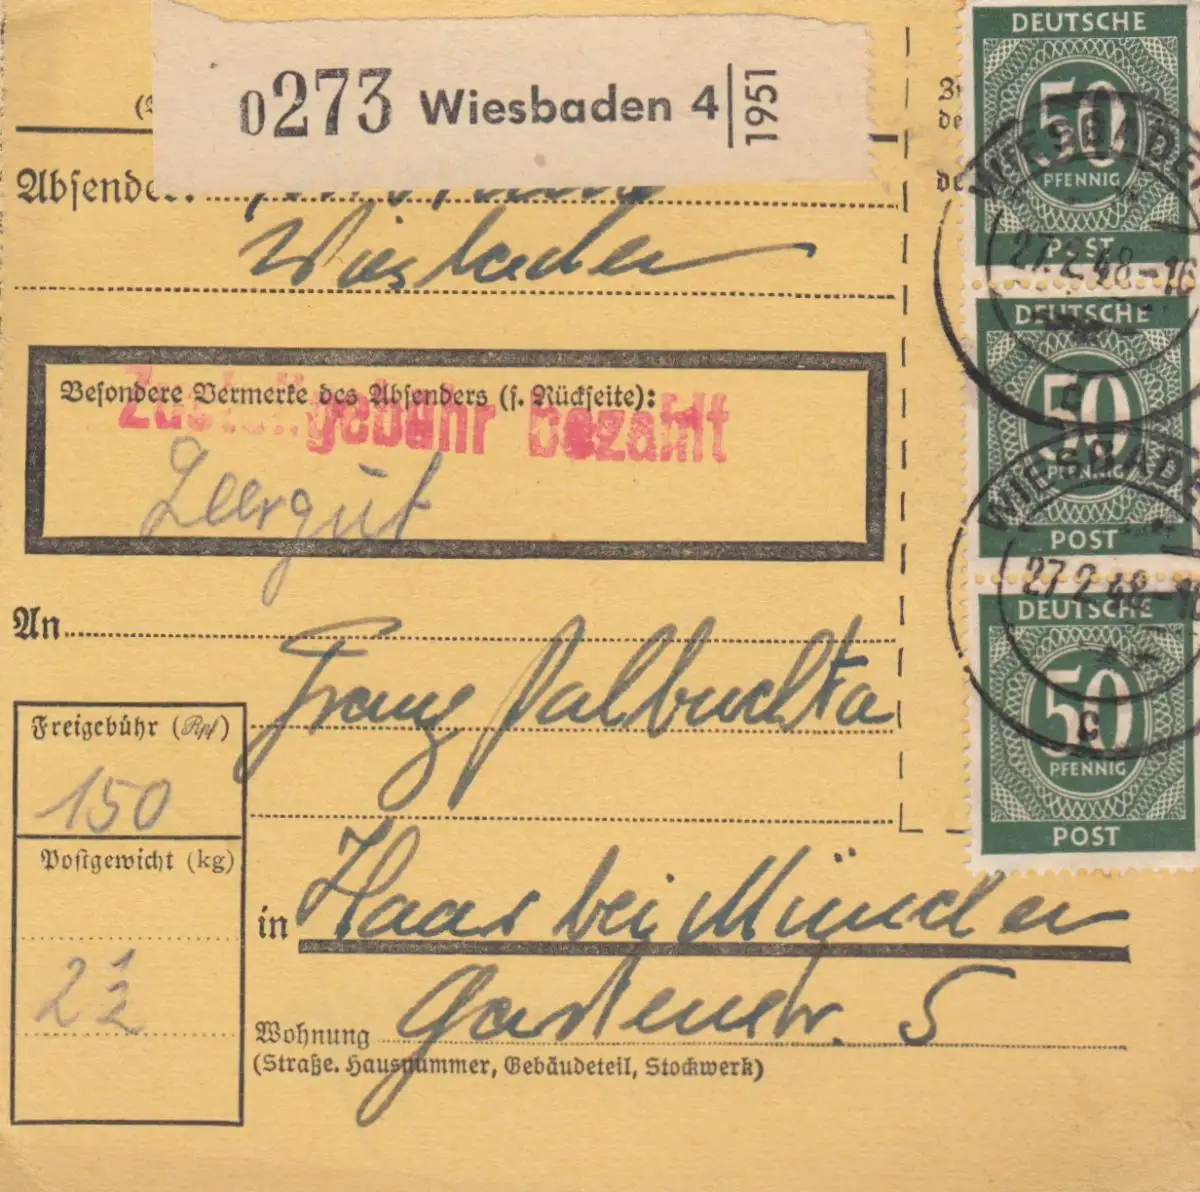 0273 Wiesbaden 4 1951
Absender:
Wiesbaden
Besondere Vermerke des Absenders (s. Rückseite):
Zustellgebühr bezahlt
Leergut
An
Franz Palbuchta
Freigebühr (Rpf)
150
Postgewicht (kg)
2 1/2
in Haar bei München
Wohnung Gartenstr. 5
(Straße, Hausnummer, Gebäudeteil, Stockwerk)
DEUTSCHE
50
PFENNIG
POST
WIESBADEN
27.2.48-16
c
DEUTSCHE
50
PFENNIG
POST
WIESBADEN
27.2.48-16
c
DEUTSCHE
50
PFENNIG
POST